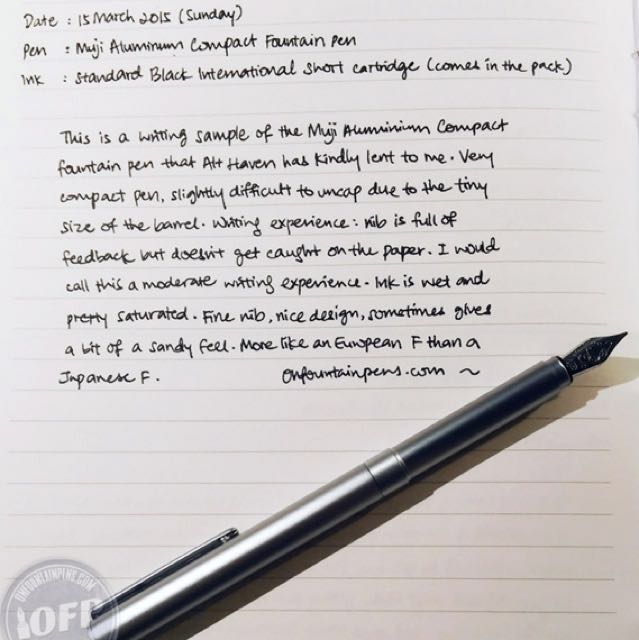 Date : 15 March 2015 (Sunday)
Pen : Muji Aluminum Compact Fountain Pen
Ink : Standard Black International Short cartridge (comes in the pack)
This is a writing sample of the Muji Aluminium Compact
fountain pen that Alt Haven has kindly lent to me. Very
compact pen, slightly difficult to uncap due to the tiny
size of the barrel. Writing experience: nib is full of
feedback but doesn't get caught on the paper. I would
call this a moderate writing experience. Ink is wet and
pretty saturated. Fine nib, nice design, sometimes gives
a bit of a sandy feel. More like an European F than a
Japanese F. Onfountainpens.com ~
ONFOUNTAINPENS.COM
OFP